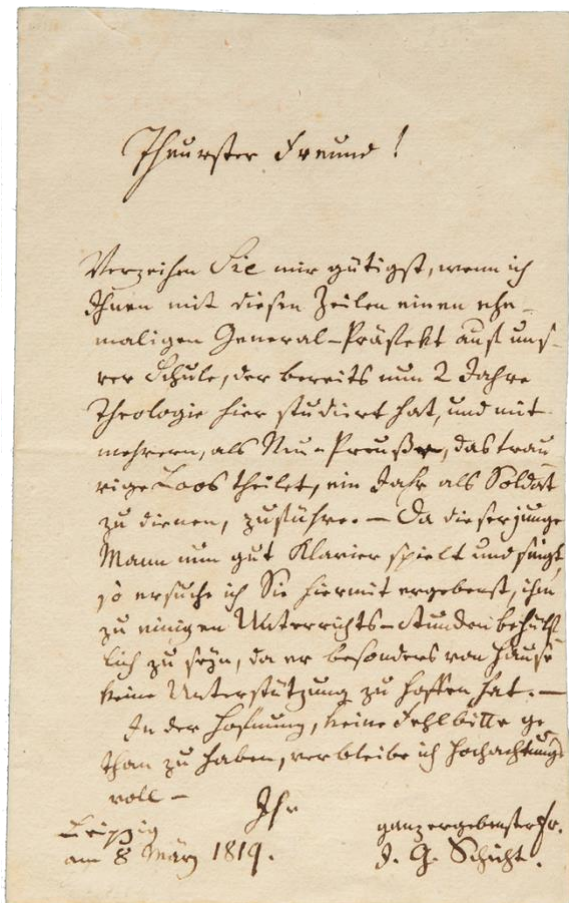 Theurster Freund!
Verzeihen Sie mir gütigst, wenn ich
Ihnen mit diesen Zeilen einen ehe-
maligen General-Präfekt aus uns-
rer Schule, der bereits nun 2 Jahre
Theologie hier studiert hat, und mit
mehrern, als Neu-Preuße, das trau-
rige Loos theilet, ein Jahr als Soldat
zu dienen, zuführe. — Da dieser junge
Mann nun gut Klavier spielt und singt,
so ersuche ich Sie hiermit ergebenst, ihm
zu einigen Unterrichts-Stunden behülf-
lich zu seyn, da er besonders von Hause
keine Unterstützung zu hoffen hat. —
In der Hofnung, keine Fehlbitte ge-
than zu haben, verbleibe ich hochachtungs-
voll —
Ihr
ganz ergebenster Fr.
J. G. Schicht.
Leipzig
am 8 März 1819.